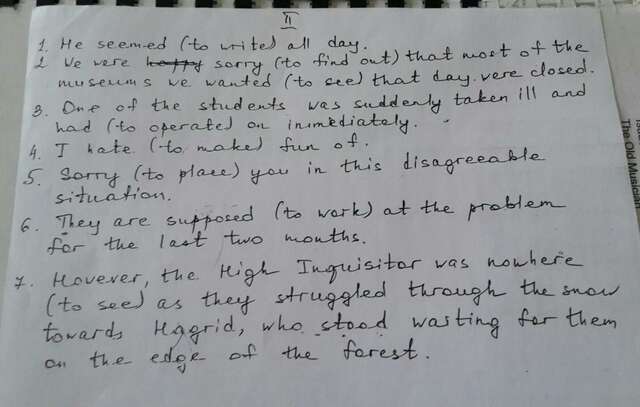 II
1. He seemed (to write) all day.
2 We were happy sorry (to find out) that most of the
museums we wanted (to see) that day were closed.
3. One of the students was suddenly taken ill and
had (to operate) on immediately.
4. I hate (to make) fun of.
5. Sorry (to place) you in this disagreeable
situation.
6. They are supposed (to work) at the problem
for the last two months.
7. However, the High Inquisitor was nowhere
(to see) as they struggled through the snow
towards Hagrid, who stood wasting for them
on the edge of the forest.
The Old Musician